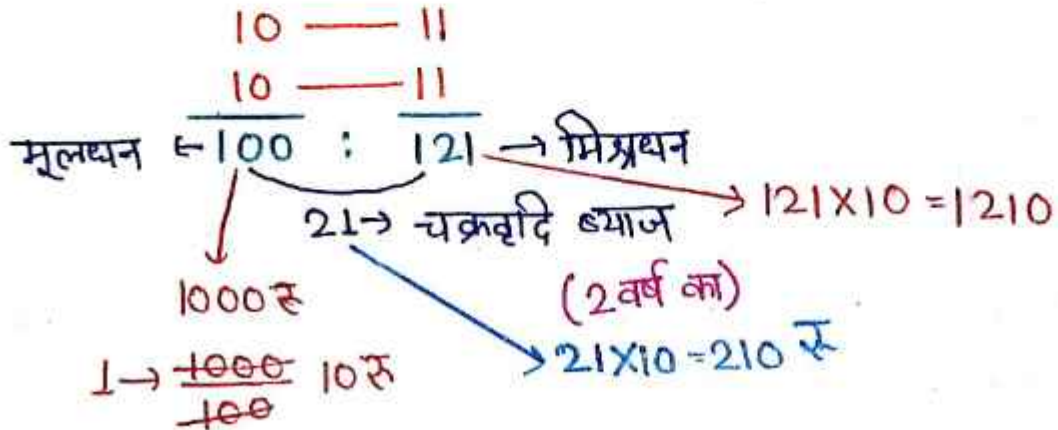 10 — 11
10 — 11
मूलधन ← 100 : 121 → मिश्रधन
121X10 = 1210
21→ चक्रवृदि ब्याज
(2 वर्ष का)
1000 रु
21X10=210 रू
1→ 1000/100 10 रु